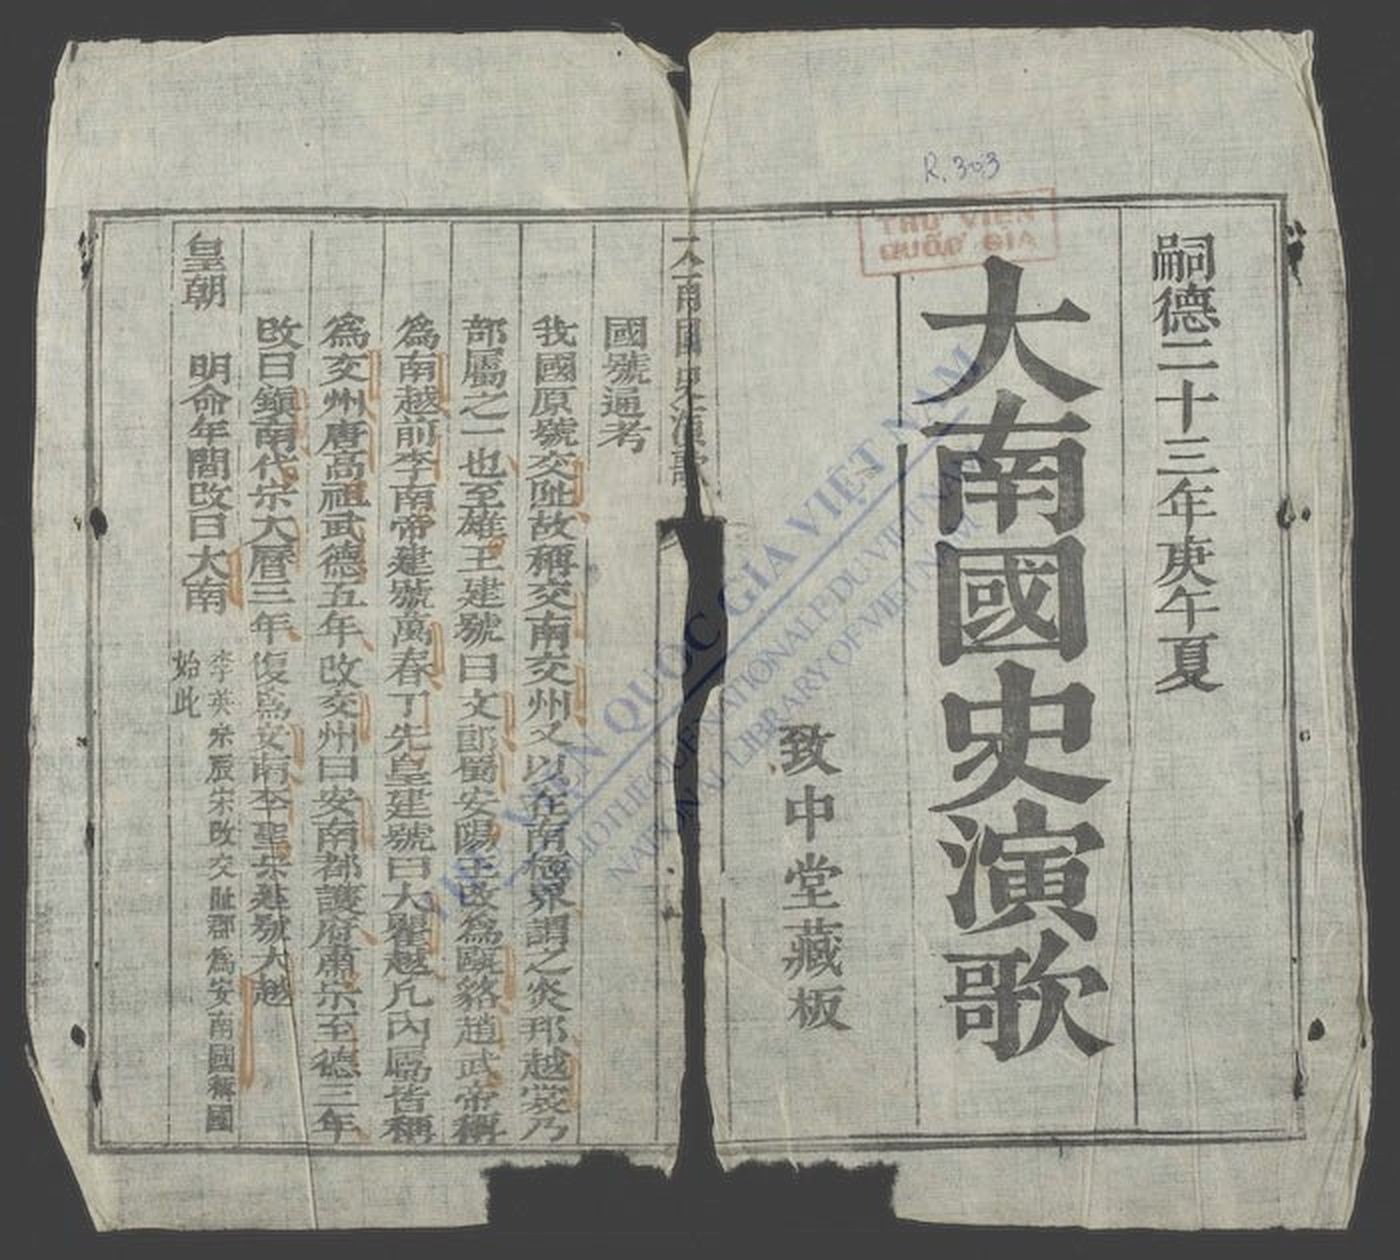 R.303
THƯ VIỆN
QUỐC GIA
嗣德二十三年庚午夏
大南國史演歌
致中堂藏板
大南國史演歌
國號通考
我國原號交趾故稱交南交州又以在南極界謂之炎邦越裳乃
部屬之一也至雄王建號曰文郎屬安陽王改爲甌貉趙武帝稱
爲南越前李南帝建號萬春丁先皇建號曰大瞿越凡內屬皆稱
爲交州唐高祖武德五年改交州曰安南都護府肅宗至德三年
改曰鎮南代宗大曆三年復爲安南李聖宗建號大越
李英宗辰宋改交趾郡爲安南國稱國
始此
皇朝 明命年間改曰大南
VIỆN QUỐC GIA VIỆT NAM
BIBLIOTHÈQUE NATIONALE DU VIETNAM
NATIONAL LIBRARY OF VIETNAM